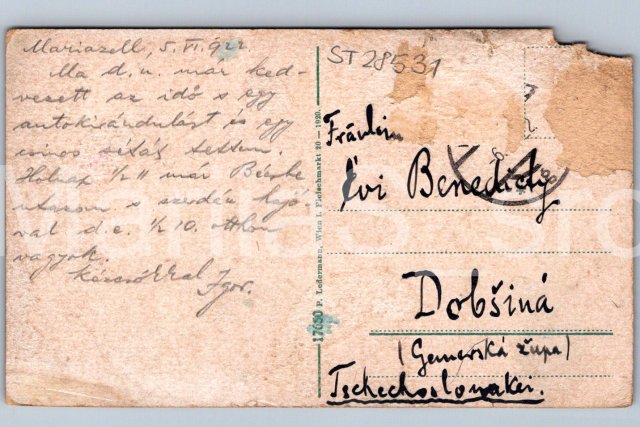 Mariazell, 5. VI. 922.
Ma d.u. már ked-
vezett az idő s egy
autokirándulást és egy
csinos sétát tettem.
Holnap 1/2 11 már Bécsbe
utazom s szerdán hajó-
val d.e. 1/2 10. otthon
vagyok.
Kézcsókkal
Igor.
17050 P. Ledermann, Wien I. Fleischmarkt 20 — 1920.
ST 28531
Fräulein
Évi Benedicty
Dobšiná
(Gemerská župa)
Tschechoslowakei.